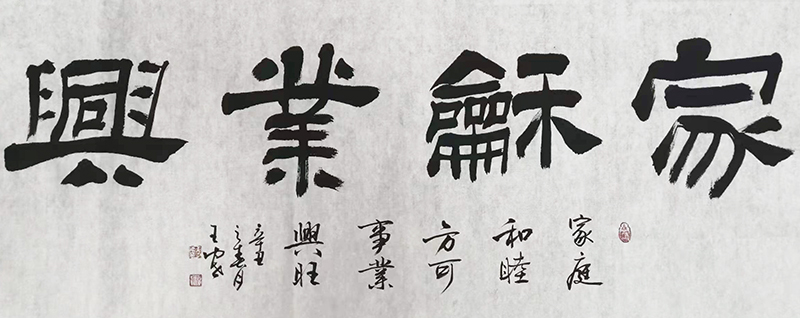 家龢業興
家庭
和睦
方可
事業
興旺
辛丑
之春月
王